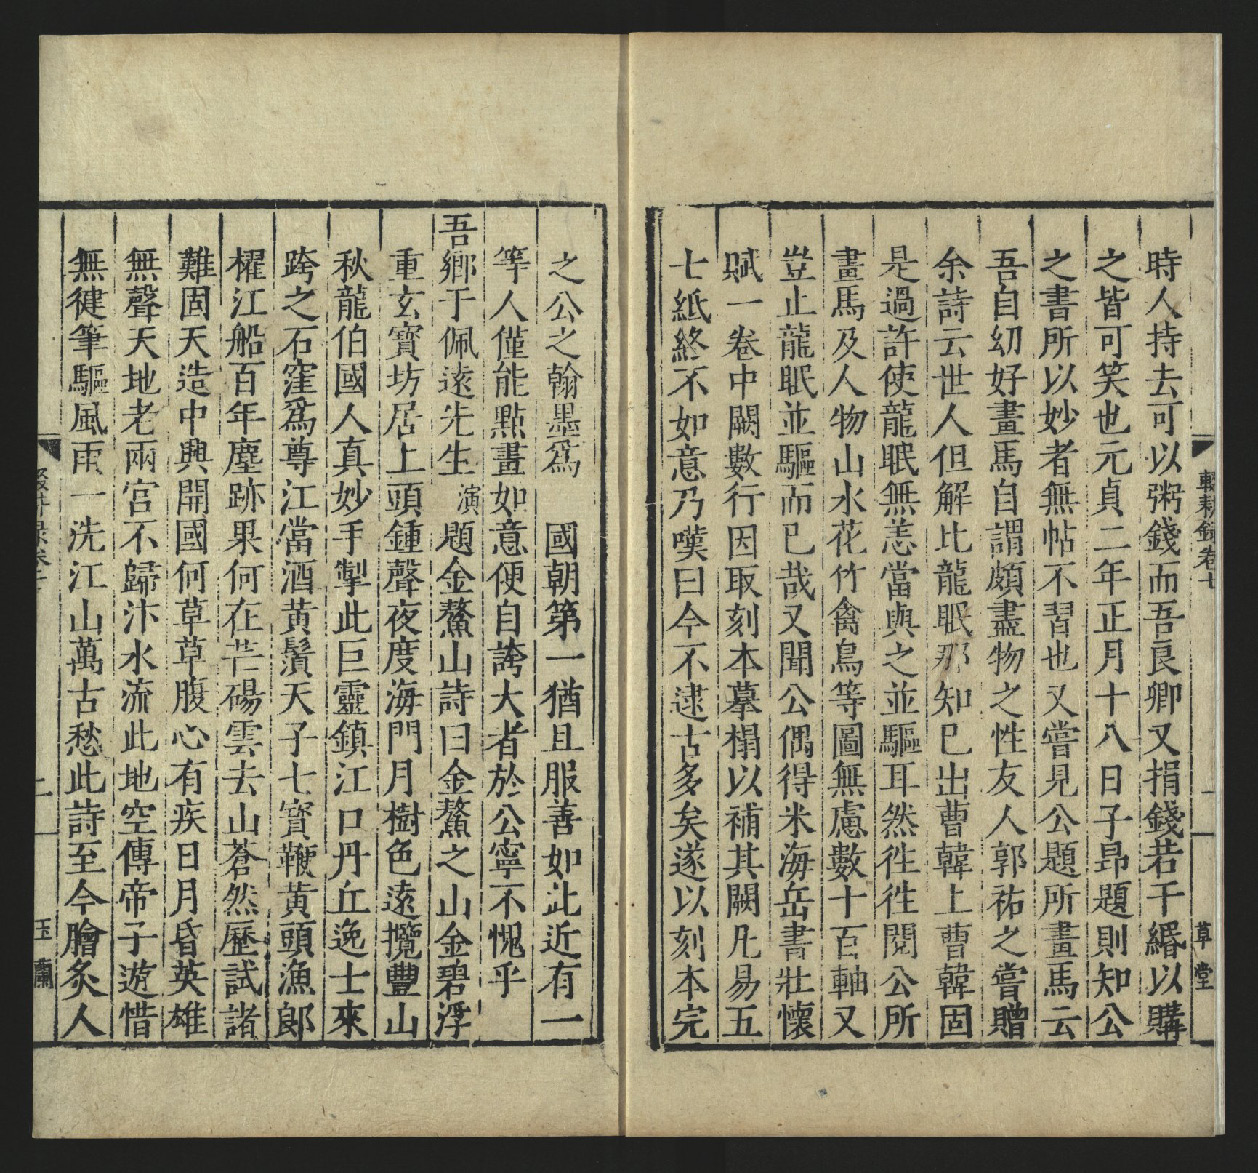 時人持去可以粥錢而吾良卿又捐錢若干緡以購
之皆可笑也元貞二年正月十八日子昂題則知公
之書所以妙者無帖不習也又嘗見公題所畫馬云
吾自幼好畫馬自謂頗盡物之性友人郭祐之嘗贈
余詩云世人但解比龍眠那知巳出曹韓上曹韓固
是過許使龍眠無恙當與之並驅耳然徃徃閱公所
畫馬及人物山水花竹禽鳥等圖無慮數十百軸又
豈止龍眠並驅而巳哉又聞公偶得米海岳書壯懷
賦一卷中闕數行因取刻本摹榻以補其闕凡易五
七紙終不如意乃嘆曰今不逮古多矣遂以刻本完
輟耕錄卷七
草堂
之公之翰墨爲 國朝第一猶且服善如此近有一
等人僅能點畫如意便自誇大者於公寧不愧乎
吾鄉于佩遠先生演題金鰲山詩曰金鰲之山金碧浮
重玄寳坊居上頭鍾聲夜度海門月樹色遠攬豐山
秋龍伯國人真妙手掣此巨靈鎮江口丹丘逸士來
跨之石窪爲尊江當酒黄鬚天子七寳鞭黄頭漁郎
櫂江船百年塵跡果何在芒碭雲去山蒼然歷試諸
難固天造中興開國何草草腹心有疾日月昏英雄
無聲天地老兩宫不歸汴水流此地空傳帝子遊惜
無徤筆驅風雨一洗江山萬古愁此詩至今膾炙人
玉蘭